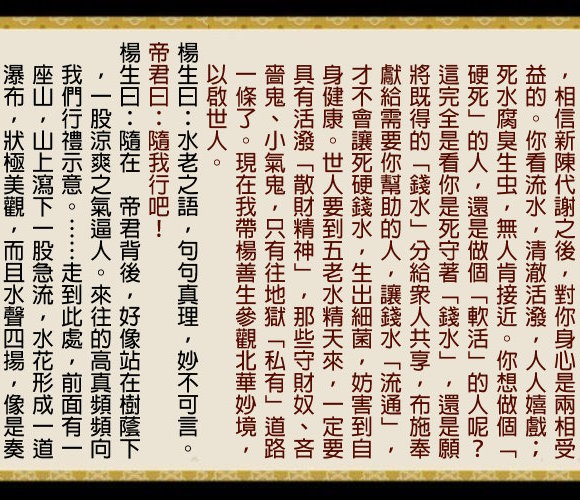 ，相信新陳代謝之後，對你身心是兩相受
益的。你看流水，清澈活潑，人人嬉戲；
死水腐臭生虫，無人肯接近。你想做個「
硬死」的人，還是做個「軟活」的人呢？
這完全是看你是死守著「錢水」，還是願
將既得的「錢水」分給衆人共享，布施奉
獻給需要你幫助的人，讓錢水「流通」，
才不會讓死硬錢水，生出細菌，妨害到自
身健康。世人要到五老水精天來，一定要
具有活潑「散財精神」，那些守財奴、吝
嗇鬼、小氣鬼，只有往地獄「私有」道路
一條了。現在我帶楊善生參觀北華妙境，
以啟世人。
楊生曰：水老之語，句句真理，妙不可言。
帝君曰：隨我行吧！
楊生曰：隨在　帝君背後，好像站在樹蔭下
，一股涼爽之氣逼人。來往的高真頻頻向
我們行禮示意。……走到此處，前面有一
座山，山上瀉下一股急流，水花形成一道
瀑布，狀極美觀，而且水聲四揚，像是奏